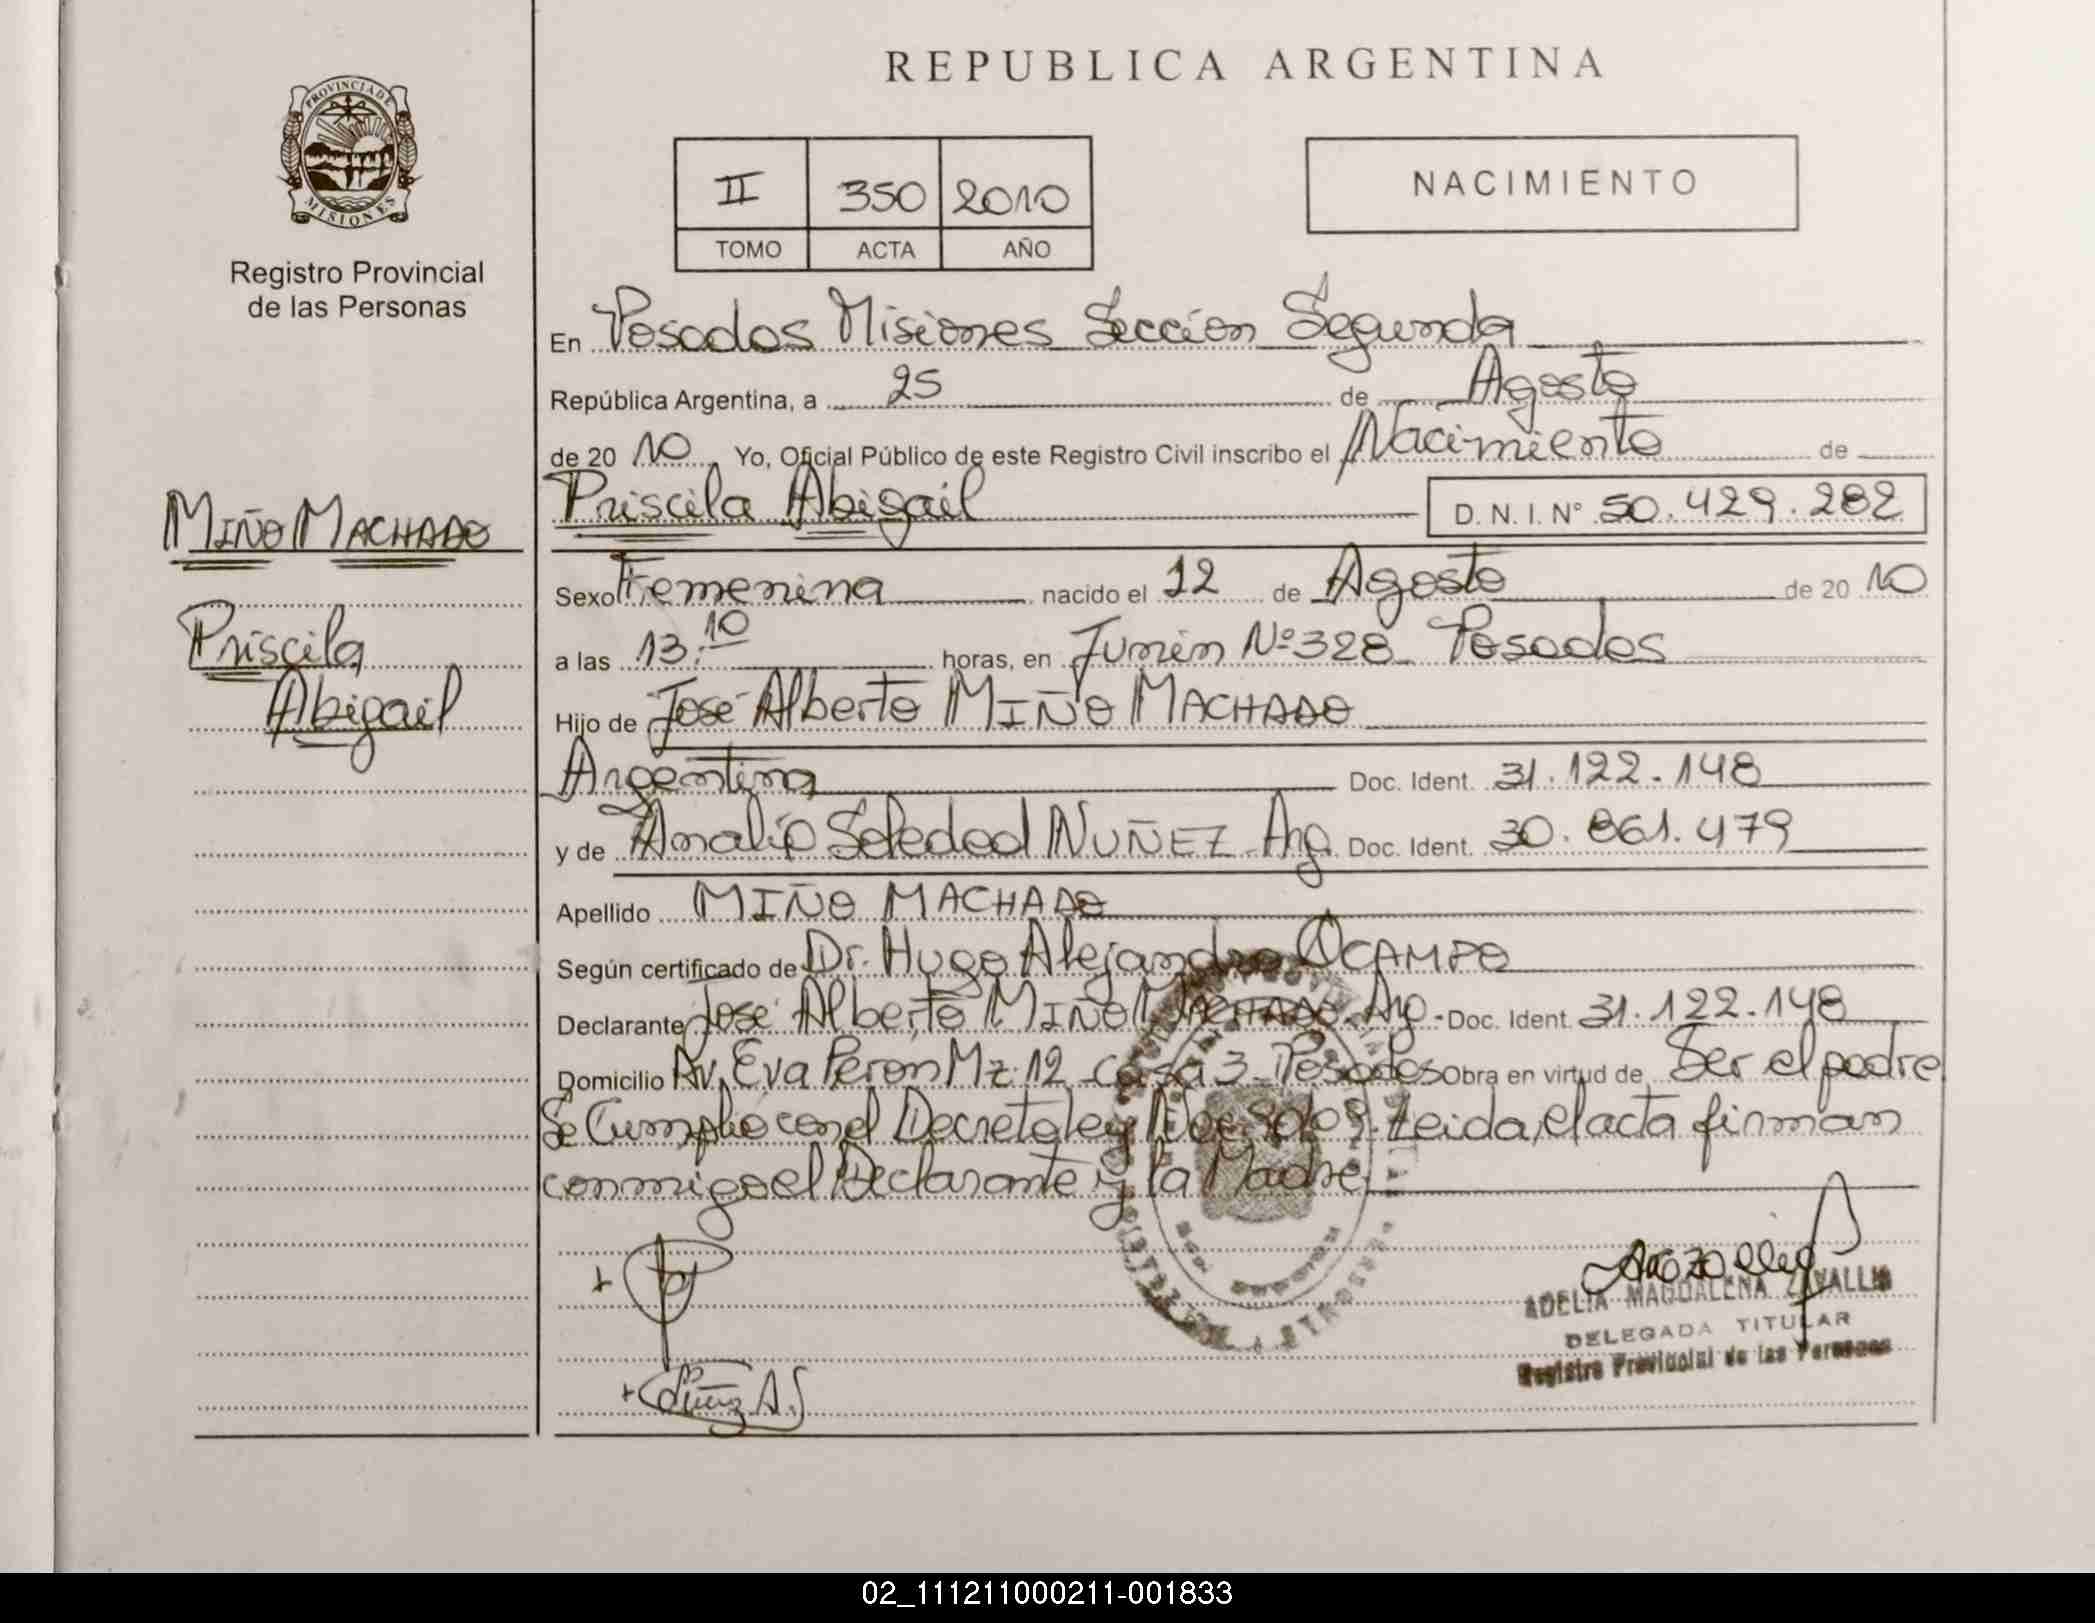 REPUBLICA ARGENTINA
PROVINCIA DE MISIONES
Registro Provincial
de las Personas
II 350 2010
TOMO ACTA AÑO
NACIMIENTO
En Posadas Misiones Sección Segunda
República Argentina, a 25 de Agosto
de 20 10 Yo, Oficial Público de este Registro Civil inscribo el Nacimiento de
MIÑO MACHADO
Priscila Abigail D. N. I. N° 50.429.282
Sexo Femenina nacido el 12 de Agosto de 20 10
Priscila
Abigail
a las 13:10 horas, en Junín Nº 328 Posadas
Hijo de José Alberto MIÑO MACHADO
Argentina Doc. Ident. 31.122.148
y de Amalia Soledad NUÑEZ Arg. Doc. Ident. 30.861.479
Apellido MIÑO MACHADO
Según certificado de Dr. Hugo Alejandro OCAMPO
Declarante José Alberto MIÑO MACHADO Arg. Doc. Ident. 31.122.148
Domicilio Av. Eva Peron Mz. 12 casa 3 Posadas Obra en virtud de Ser el padre
Se Cumplió con el Decreto ley Leida, el acta firman
conmigo el Declarante y la Madre
ADELIA MAGDALENA ZAVALLIA
DELEGADA TITULAR
Registro Provincial de las Personas
02_111211000211-001833